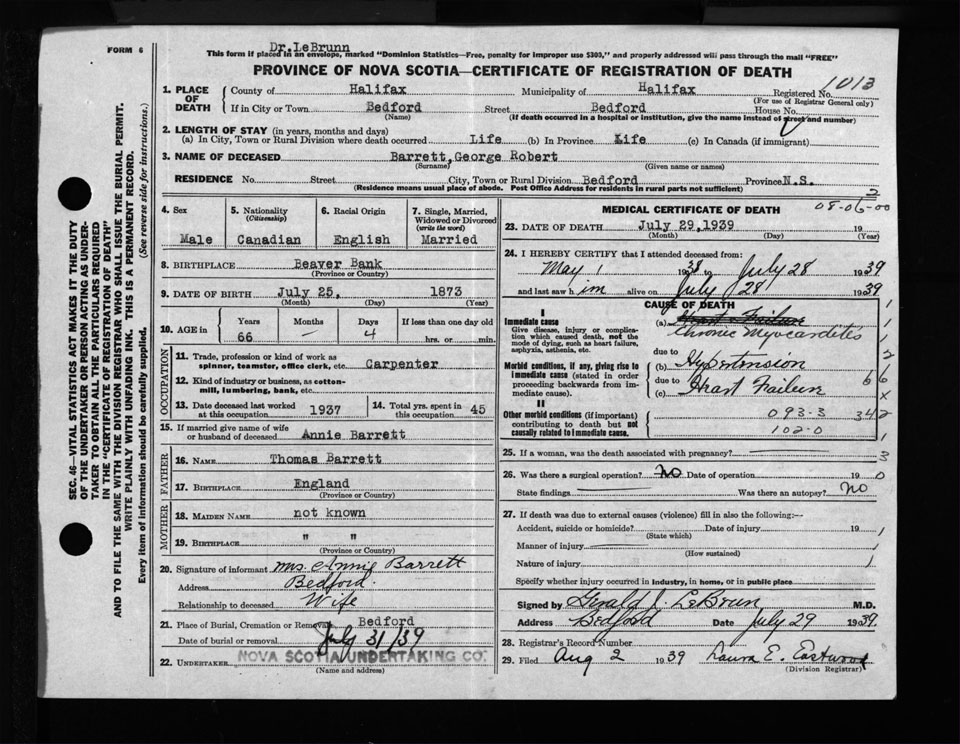 FORM 6
Dr. LeBrunn
This form if placed in an envelope, marked "Dominion Statistics—Free, penalty for improper use $300," and properly addressed will pass through the mail "FREE"
PROVINCE OF NOVA SCOTIA—CERTIFICATE OF REGISTRATION OF DEATH
1013
1. PLACE OF DEATH
County of Halifax Municipality of Halifax Registered No.
(For use of Registrar General only)
If in City or Town Bedford Street Bedford House No.
(Name) (If death occurred in a hospital or institution, give the name instead of street and number)
2. LENGTH OF STAY (in years, months and days)
(a) In City, Town or Rural Division where death occurred Life (b) In Province Life (c) In Canada (if immigrant)
3. NAME OF DECEASED Barrett, George Robert
(Surname) (Given name or names)
RESIDENCE No. Street City, Town or Rural Division Bedford Province N.S.
(Residence means usual place of abode. Post Office Address for residents in rural parts not sufficient)
SEC. 46—VITAL STATISTICS ACT MAKES IT THE DUTY
OF THE UNDERTAKER OR PERSON ACTING AS UNDER-
TAKER TO OBTAIN ALL THE PARTICULARS REQUIRED
IN THE "CERTIFICATE OF REGISTRATION OF DEATH"
AND TO FILE THE SAME WITH THE DIVISION REGISTRAR WHO SHALL ISSUE THE BURIAL PERMIT.
WRITE PLAINLY WITH UNFADING INK. THIS IS A PERMANENT RECORD.
Every item of information should be carefully supplied. (See reverse side for instructions.)
4. Sex
Male
5. Nationality
(Citizenship)
Canadian
6. Racial Origin
English
7. Single, Married,
Widowed or Divorced
(write the word)
Married
8. BIRTHPLACE Beaver Bank
(Province or Country)
9. DATE OF BIRTH July 25, 1873
(Month) (Day) (Year)
10. AGE in
Years Months Days If less than one day old
66 4 hrs. or min.
OCCUPATION
11. Trade, profession or kind of work as
spinner, teamster, office clerk, etc. Carpenter
12. Kind of industry or business, as cotton-
mill, lumbering, bank, etc.
13. Date deceased last worked
at this occupation 1937
14. Total yrs. spent in
this occupation 45
15. If married give name of wife
or husband of deceased Annie Barrett
FATHER
16. NAME Thomas Barrett
17. BIRTHPLACE England
(Province or Country)
MOTHER
18. MAIDEN NAME not known
19. BIRTHPLACE " "
(Province or Country)
20. Signature of informant Mrs. Annie Barrett
Address Bedford
Relationship to deceased Wife
21. Place of Burial, Cremation or Removal Bedford
Date of burial or removal July 31/39
22. UNDERTAKER NOVA SCOTIA UNDERTAKING CO.
(Name and address)
2
MEDICAL CERTIFICATE OF DEATH 08-06-00
23. DATE OF DEATH July 29, 1939 19
(Month) (Day) (Year)
24. I HEREBY CERTIFY that I attended deceased from:
May 1 1938 to July 28 1939
and last saw him alive on July 28 1939
CAUSE OF DEATH
I
Immediate cause
Give disease, injury or complica-
tion which caused death, not the
mode of dying, such as heart failure,
asphyxia, asthenia, etc.
(a) Heart Failure
Chronic Myocarditis
Morbid conditions, if any, giving rise to
immediate cause (stated in order
proceeding backwards from im-
mediate cause).
due to
(b) Hypertension
due to
(c) Heart Failure
II
Other morbid conditions (if important)
contributing to death but not
causally related to immediate cause.
093-3 342
102-0
25. If a woman, was the death associated with pregnancy?
26. Was there a surgical operation? No Date of operation 19
State findings Was there an autopsy? No
27. If death was due to external causes (violence) fill in also the following:—
Accident, suicide or homicide? Date of injury 19
(State which)
Manner of injury
(How sustained)
Nature of injury
Specify whether injury occurred in industry, in home, or in public place
Signed by Gerald J. LeBrun M.D.
Address Bedford Date July 29 1939.
28. Registrar's Record Number
29. Filed Aug 2 1939 Laura E. Eastwood
(Division Registrar)